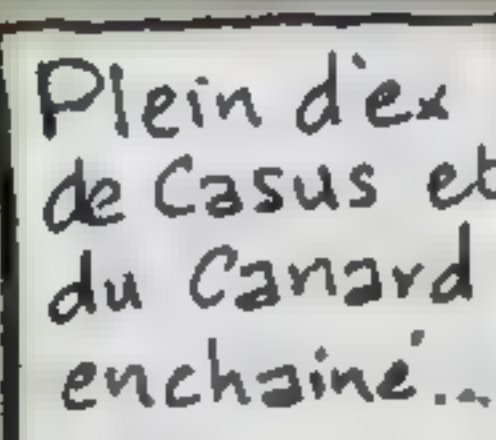 Plein d'ex
de Casus et
du Canard
enchainé...